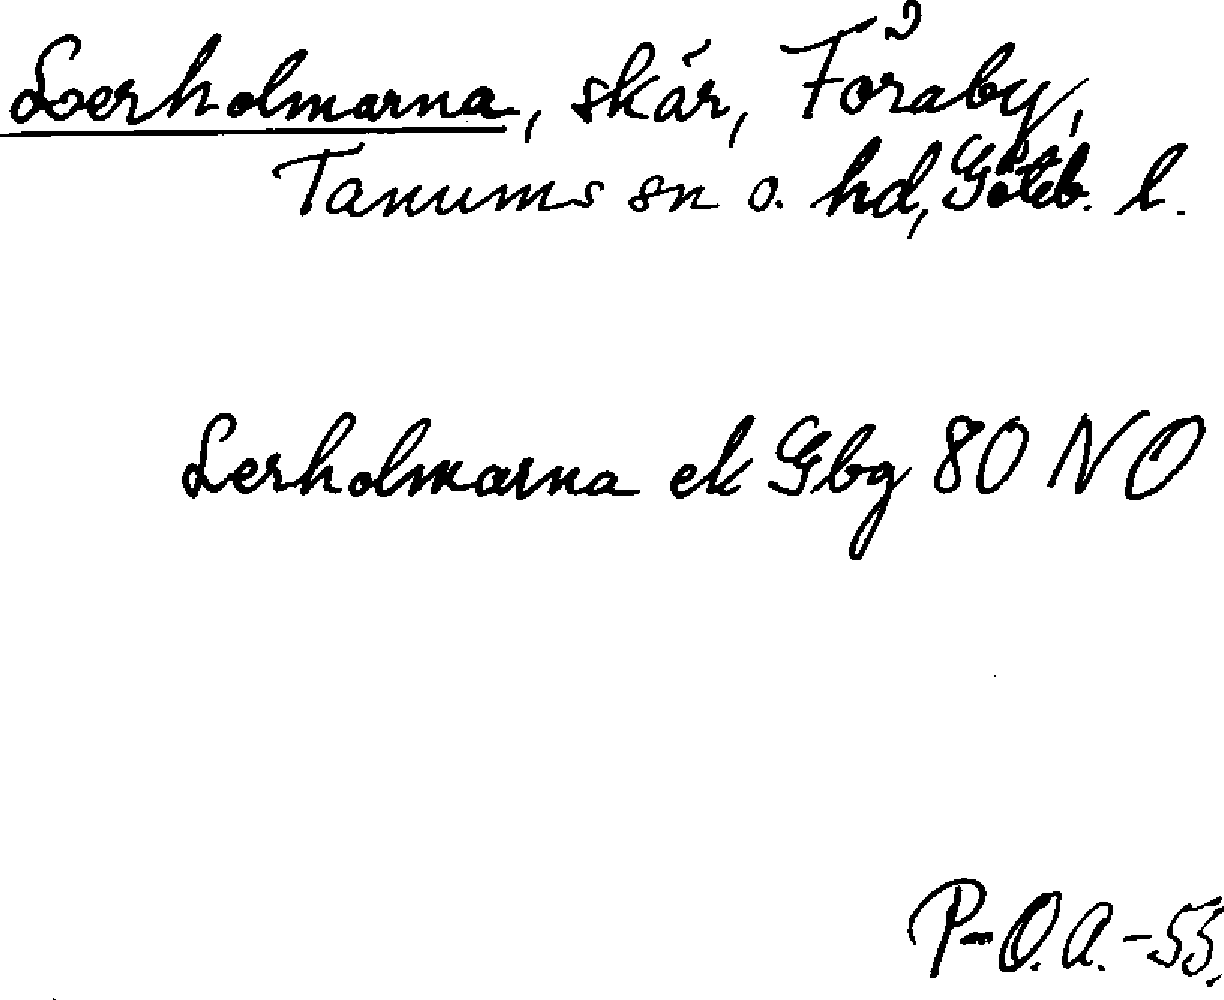 Lerholmarna, skär, Föraby,
Tanums sn o. hd, Göteb. l.
Lerholmarna ek Gbg 80 NO
P-O.A.-53.